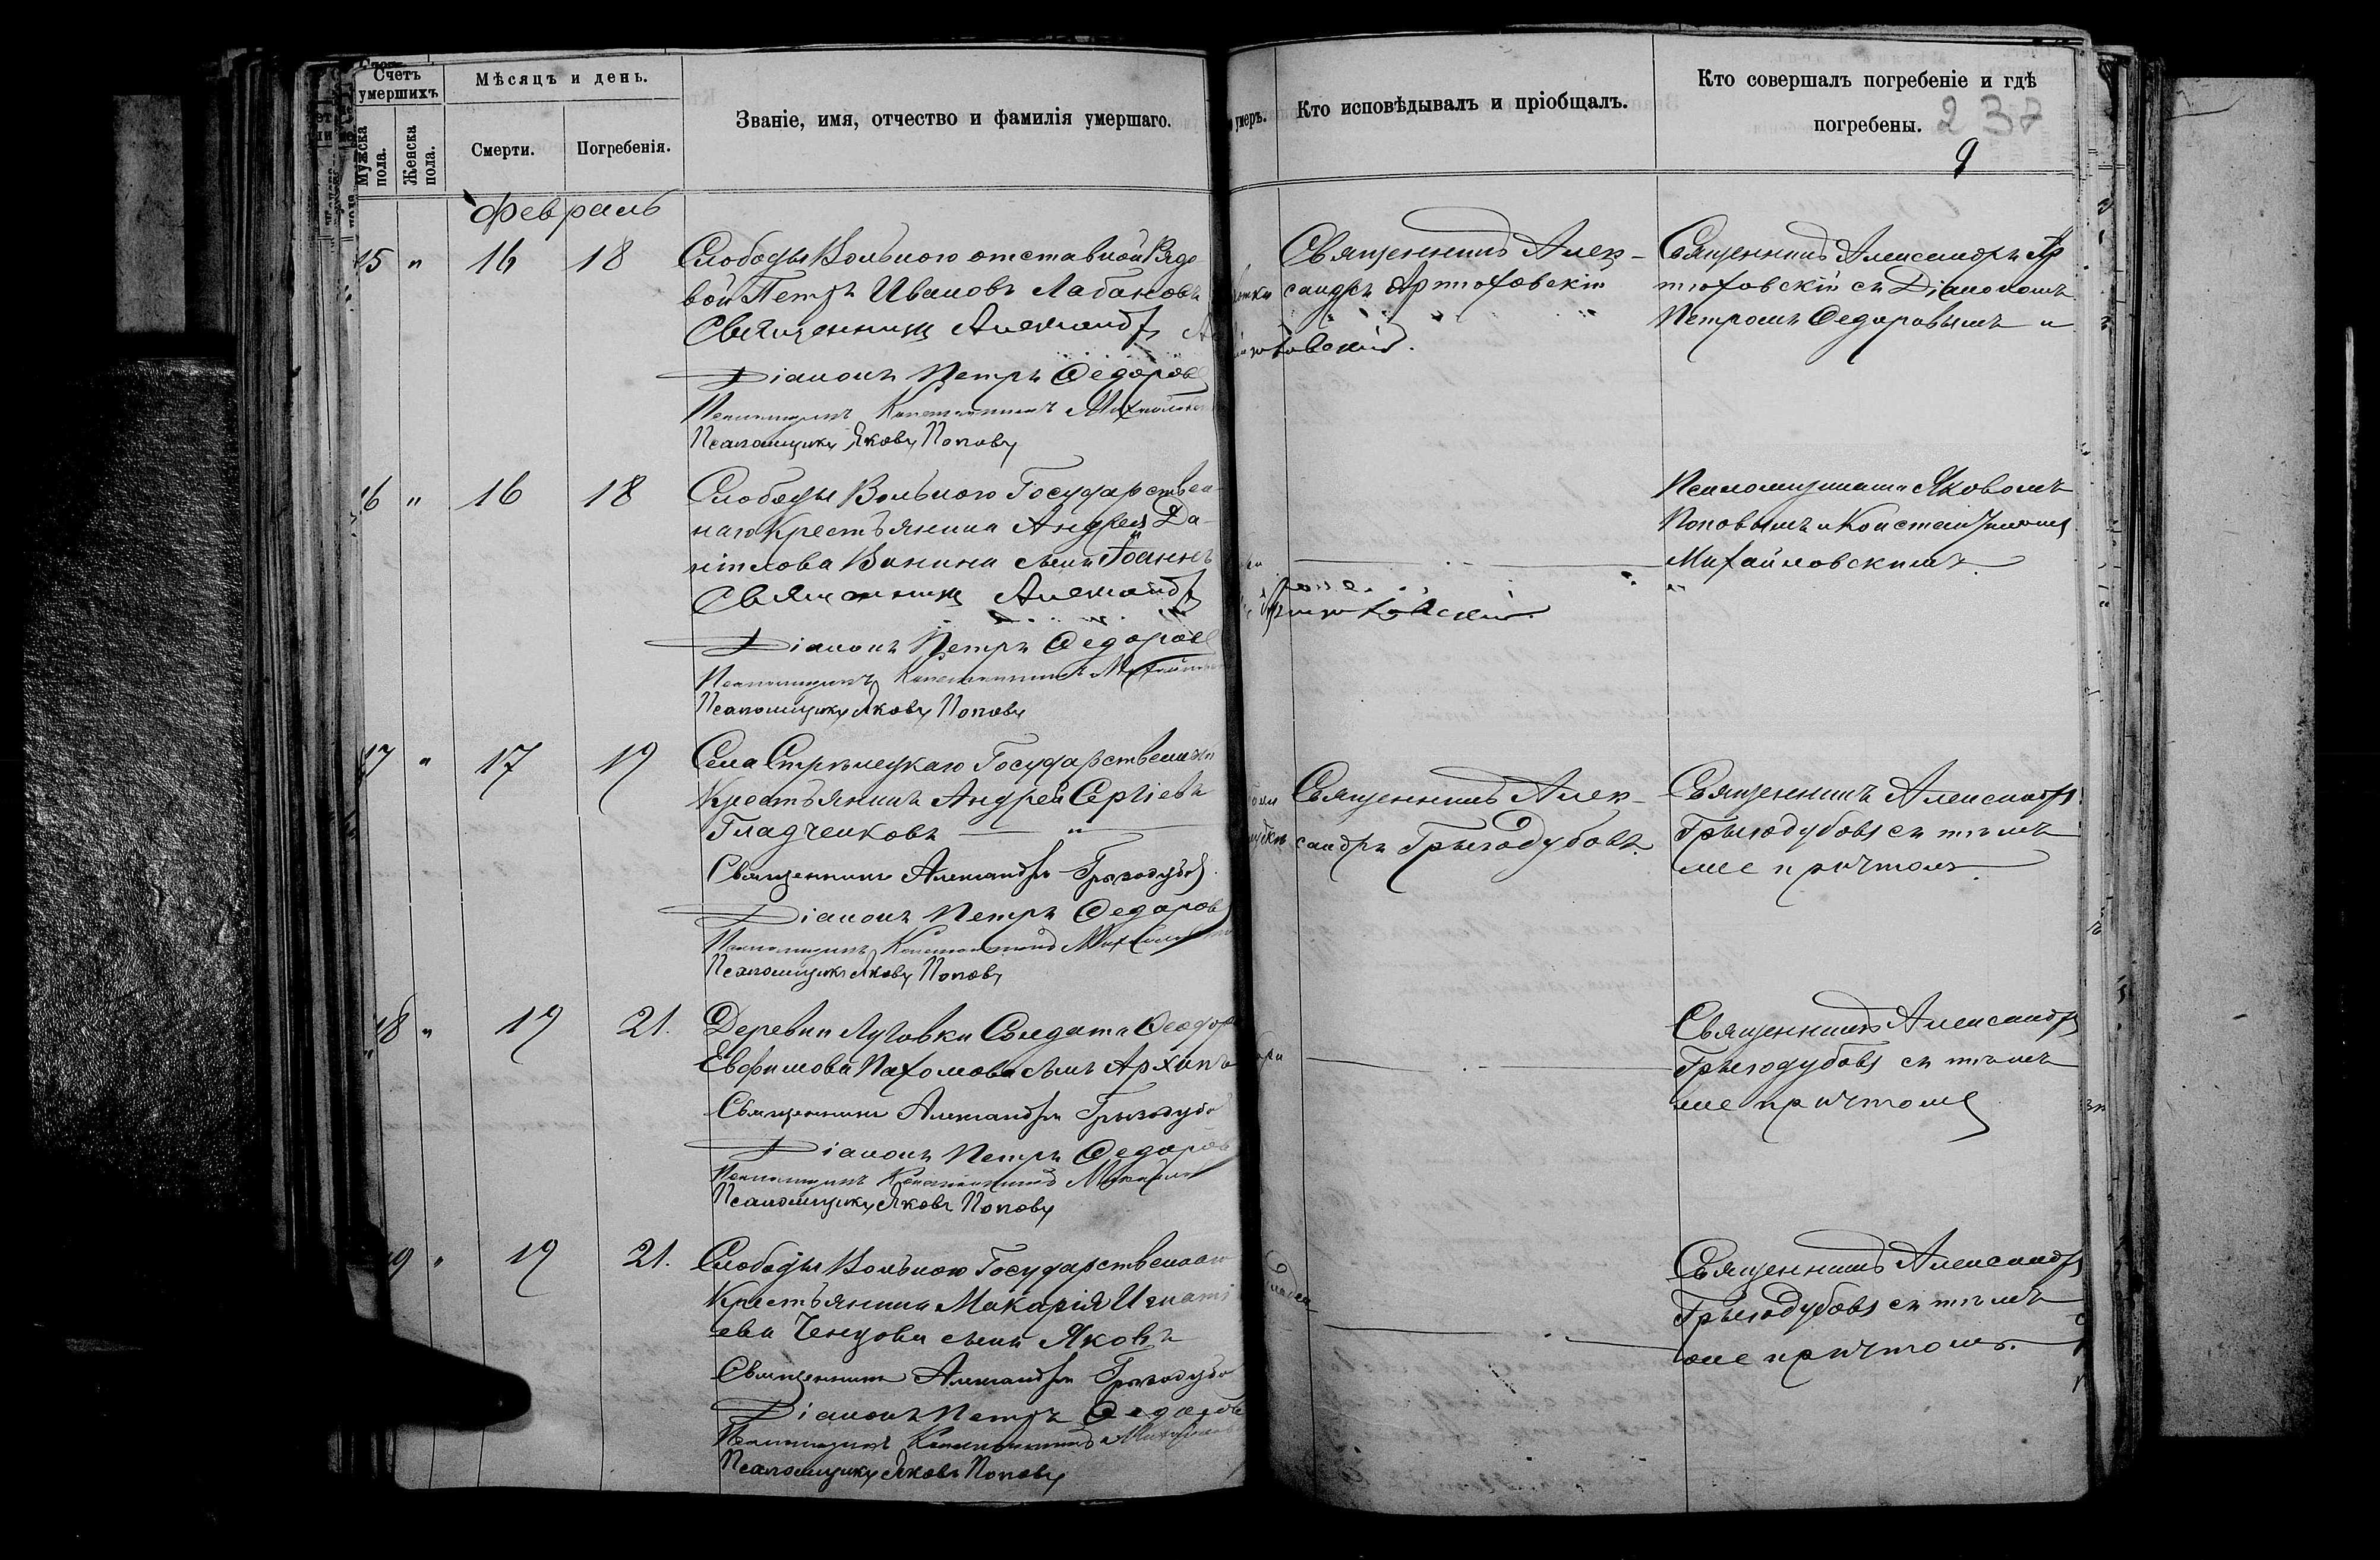 Счетъ умершихъ
Мѣсяцъ и день.
Званіе, имя, отчество и фамилія умершаго.
умеръ.
Кто исповѣдывалъ и пріобщалъ.
Кто совершалъ погребеніе и гдѣ
погребены.
237
9
Мужска пола.
Женска пола.
Смерти.
Погребенія.
Февраль
15 " 16 18
Слободы Вольного отставной Рядо
вой Петръ Ивановъ Лабановъ
Священникъ Александръ
Діаконъ Петръ Ѳедоровъ
Псаломщикъ Константинъ
Псаломщикъ Яковъ Поповъ
Священникъ Алек-
сандръ Артюховскій
Священникъ Александръ Ар
тюховскій съ Діакономъ
Петромъ Ѳедоровымъ и
16 " 16 18
Слободы Вольного Государствен
наго Крестьянина Андрея Да-
ніилова Ванина сынъ Іоаннъ
Священникъ Александръ
Артюховскій
Діаконъ Петръ Ѳедоровъ
Псаломщикъ Константинъ
Псаломщикъ Яковъ Поповъ
Псаломщиками Яковомъ
Поповымъ и Константиномъ
Михайловскимъ
17 " 17 19
Села Стрѣлецкаго Государственный
Крестьянинъ Андрей Сергіевъ
Гладченковъ
Священникъ Александръ Грызодубовъ
Діаконъ Петръ Ѳедоровъ
Псаломщикъ Константинъ
Псаломщикъ Яковъ Поповъ
Священникъ Алек-
сандръ Грызодубовъ.
Священникъ Александръ
Грызодубовъ съ тѣмъ
же причтомъ.
18 " 19 21.
Деревни Луговки Солдата Ѳеодора
Евфимова Пахомова сынъ Архипъ
Священникъ Александръ Грызодубо
Діаконъ Петръ Ѳедоровъ
Псаломщикъ Константинъ
Псаломщикъ Яковъ Поповъ
Священникъ Александръ
Грызодубовъ съ тѣмъ
же причтомъ
19 " 19 21.
Слободы Вольного Государственнаго
Крестьянина Макарія Игнаті
ева Ченцова сынъ Яковъ
Священникъ Александръ Грызодубо
Діаконъ Петръ Ѳедоровъ
Псаломщикъ Константинъ
Псаломщикъ Яковъ Поповъ
Священникъ Александръ
Грызодубовъ съ тѣмъ
же причтомъ.